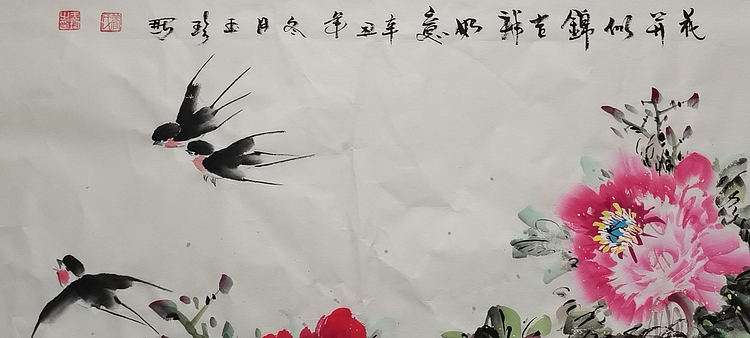 花开似锦吉祥如意辛丑年冬月玉珍